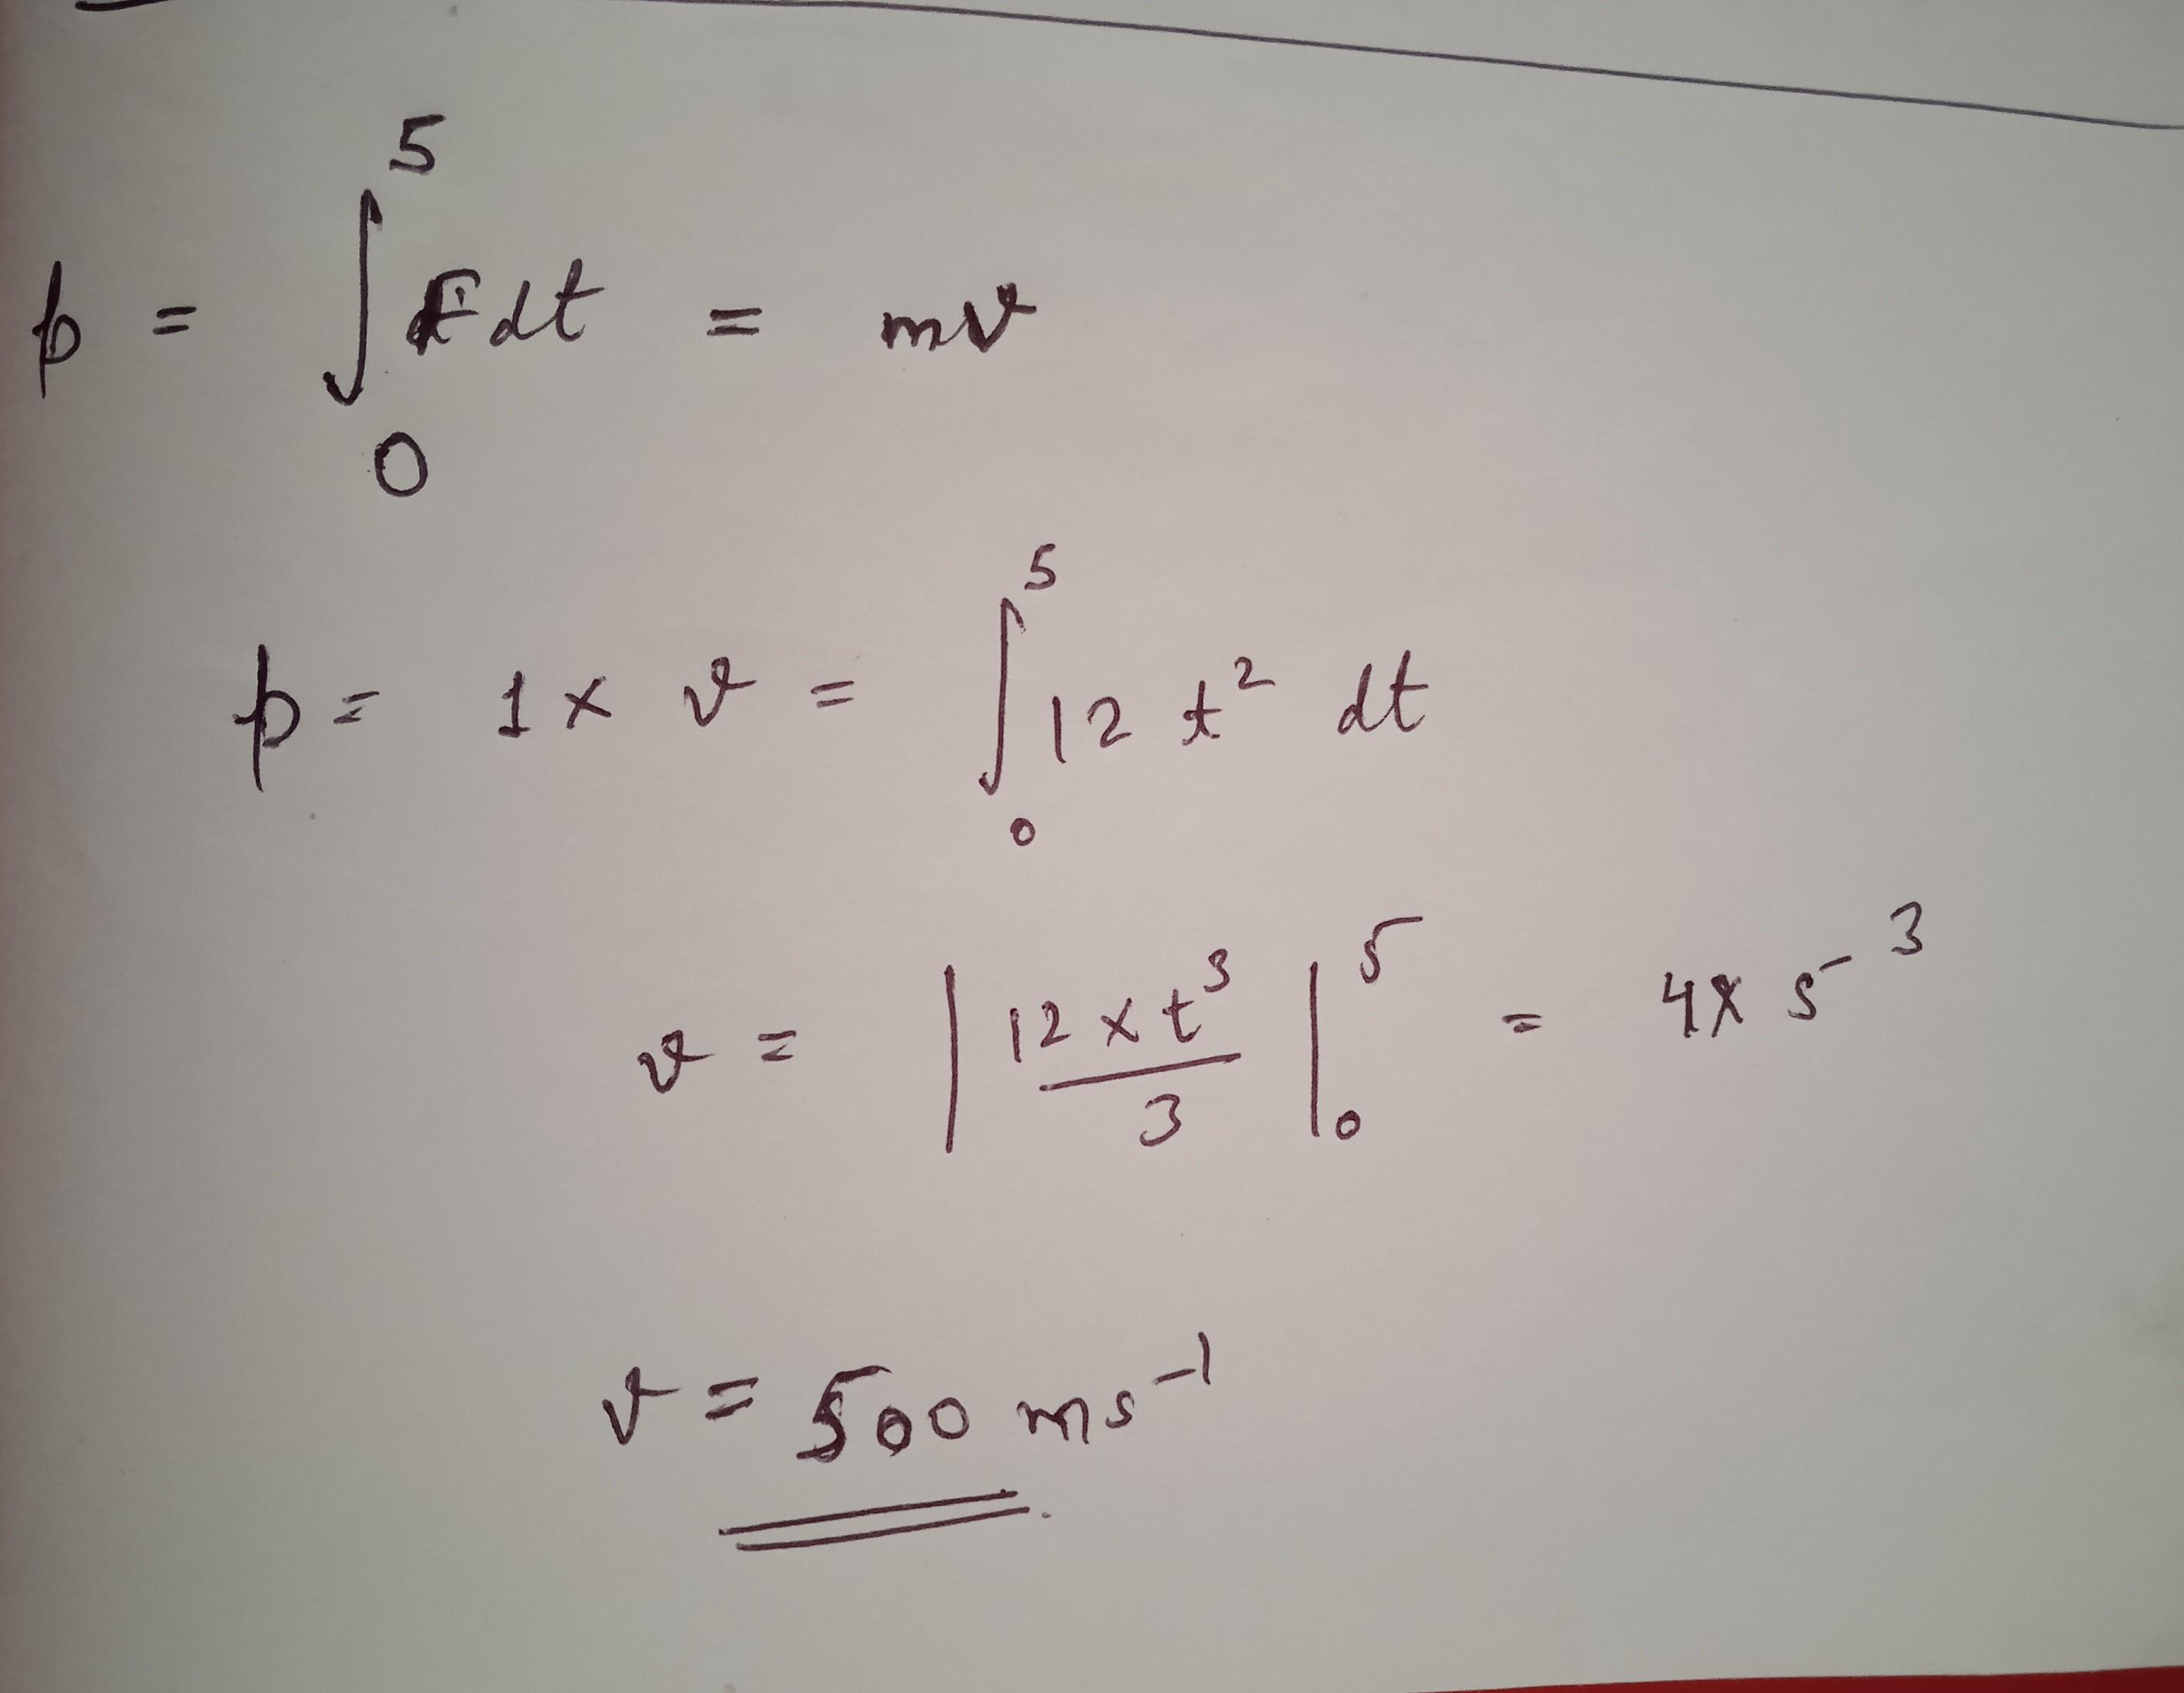 p = ∫₀⁵ F dt = mv
p = 1 × v = ∫₀⁵ 12 t² dt
v = | 12 × t³ / 3 |₀⁵ = 4 × 5³
v = 500 ms⁻¹